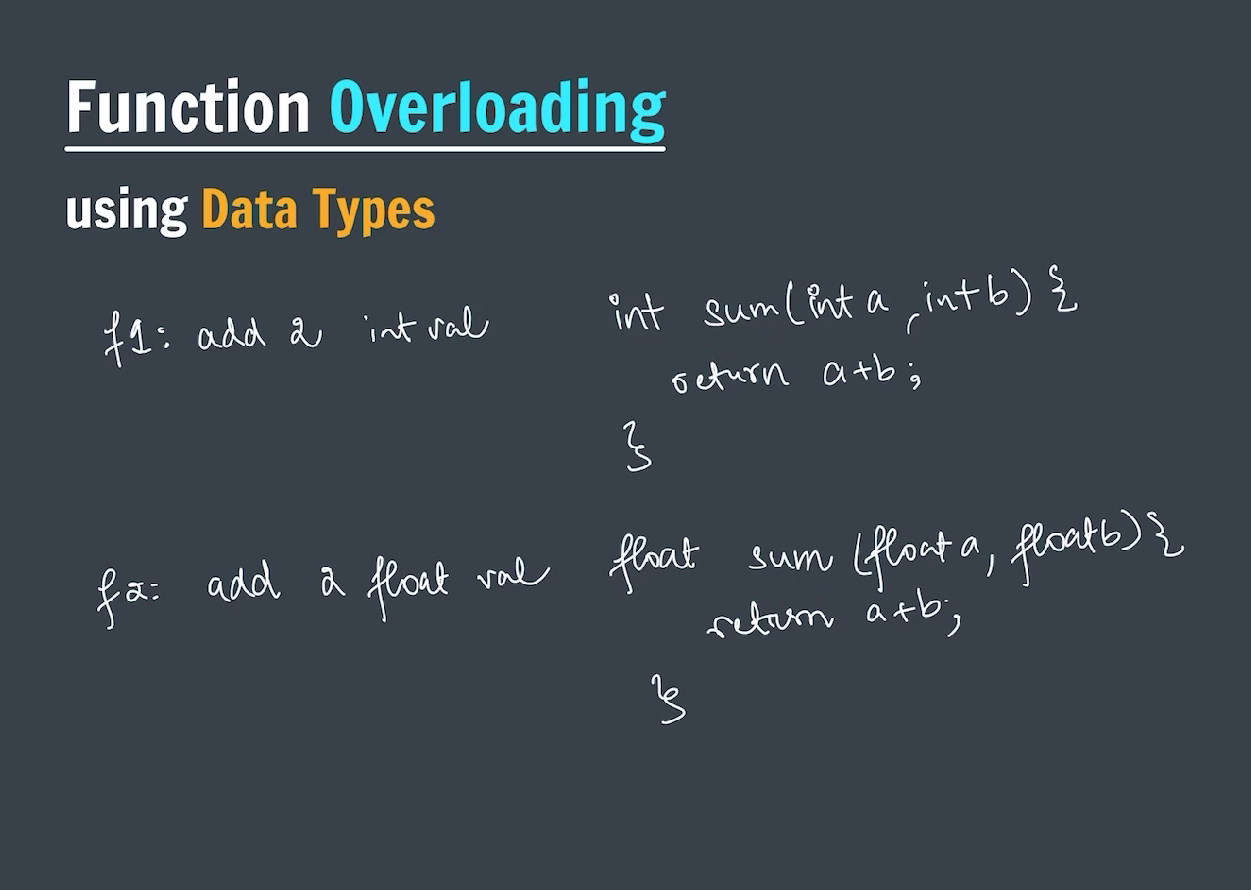 Function Overloading
using Data Types
f1: add 2 int val
int sum(int a, int b) {
return a+b;
}
f2: add 2 float val
float sum (float a, float b) {
return a+b;
}